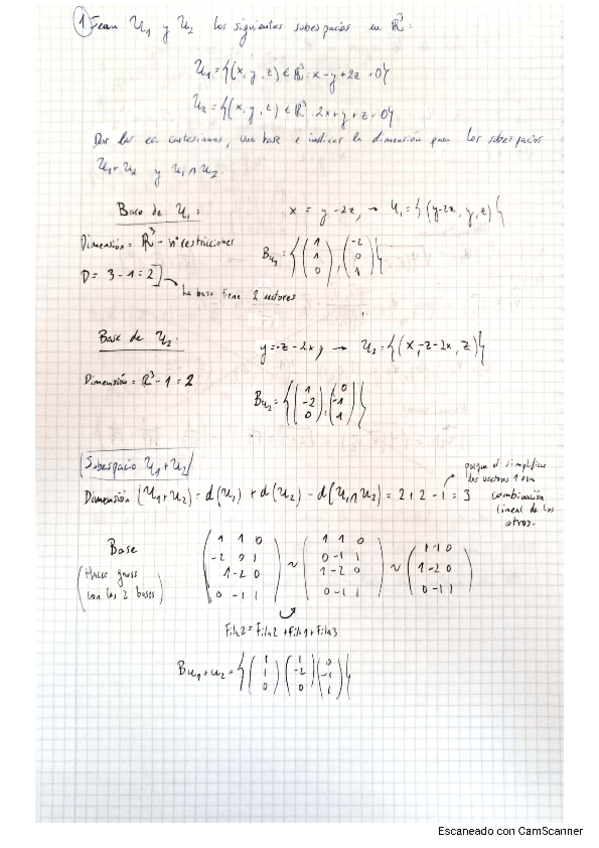 ① Sean U₁ y U₂ los siguientes subespacios en ℝ³:
U₁ = {(x, y, z) ∈ ℝ³: x - y + 2z = 0}
U₂ = {(x, y, z) ∈ ℝ³: 2x + y + z = 0}
Dar las ec. cartesianas, una base e indicar la dimensión para los subespacios
U₁+U₂ y U₁∩U₂.
Base de U₁:
x = y - 2z, → U₁ = {(y-2z, y, z)}
Dimensión = ℝ³ - nº restricciones
D = 3 - 1 = 2] → La base tiene 2 vectores
B_U₁ = {(1 1 0), (-2 0 1)}
Base de U₂:
y = -z - 2x, → U₂ = {(x, -z-2x, z)}
Dimensión = ℝ³ - 1 = 2
B_U₂ = {(1 -2 0), (0 -1 1)}
(Subespacio U₁+U₂)
Dimensión (U₁+U₂) = d(U₁) + d(U₂) - d(U₁∩U₂) = 2 + 2 - 1 = 3
porque al simplificar
los vectores 1 era
combinación
lineal de los
otros.
Base
(Hacer gauss
con las 2 bases)
1 1 0   1 1 0   1 1 0
-2 0 1 ~ 0 -1 1 ~ 1 -2 0
1 -2 0   1 -2 0   0 -1 1
0 -1 1   0 -1 1
Fila2 = Fila2 + Fila1 + Fila3
B_U₁+U₂ = {(1 1 0) (1 -2 0) (0 -1 1)}
Escaneado con CamScanner